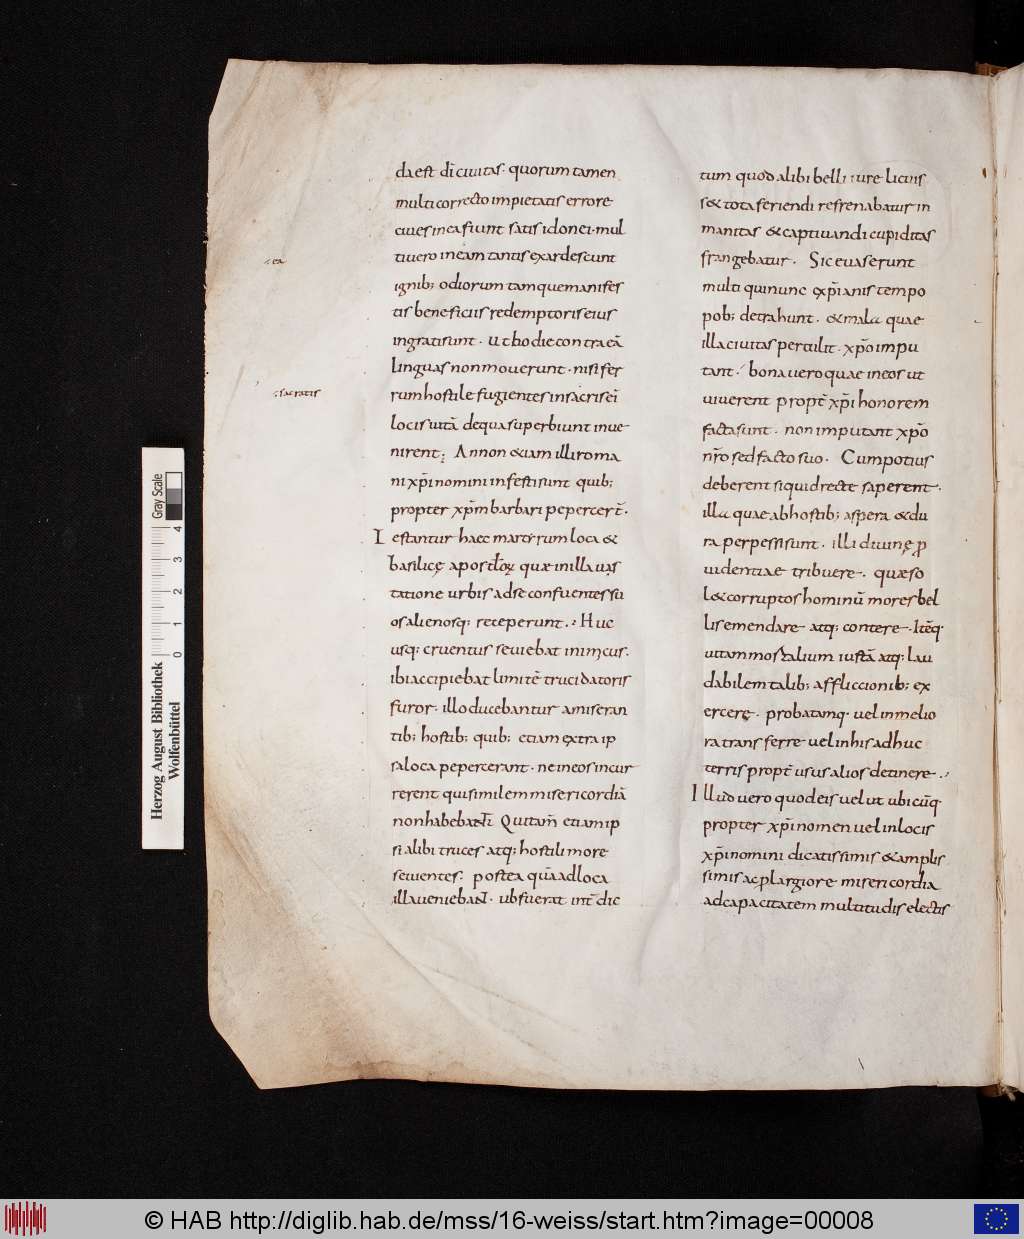 da est dī ciuitas· quorum tamen
multi correcto impietatis errore
ciues in ea fiunt satis idonei· mul
ti uero in eam tantis exardescunt
ignib; odiorum tam que manifes
tis beneficiis redemptoris eius
ingrati sunt· Ut hodie contra eā
linguas non mouerent· nisi fer
rum hostile fugientes in sacris ei
locis uitā de qua superbiunt inue
nirent; An non etiam illi roma
ni xp̄i nomini infesti sunt quib;
propter xp̄m barbari pepercer̄t·
Testantur haec martyrum loca &
basilicę apostolorum quae in illa uas
tatione urbis ad se confuentes su
os alienosq; receperunt. Huc
usq; cruentus seuiebat inimicus·
ibi accipiebat limitē trucidatoris
furor· illo ducebantur a miseran
tib; hostib; quib; etiam extra ip
sa loca pepercerant· ne in eos incur
rerent qui similem misericordiā
non habebant· Qui tam̄ etiam ip
si alibi truces atq; hostili more
seuientes· postea quā ad loca
illa ueniebant· ubi fuerat int̄dic
ea
sacratis
tum quod alibi belli iure licuis
s& tota feriendi refrenabatur in
manitas & captiuandi cupiditas
frangebatur· Sic euaserunt
multi qui nunc xp̄ianis tempo
rib; detrahunt· & mala quae
illa ciuitas pertulit· xp̄o impu
tant· bona uero quae in eos ut
uiuerent propt̄ xp̄i honorem
facta sunt· non imputant xp̄o
nr̄o sed facto suo· Cum potius
deberent si quid recte saperent·
illa quae ab hostib; aspera & du
ra perpessi sunt· illi diuinę p
uidentiae tribuere· quae so
l& corruptos hominū mores bel
lis emendare atq; contere· Itēq·
uitam mortalium iustā atq; lau
dabilem talib; affliccionib; ex
ercerę· probatamq· uel in melio
ra transferre uel in his adhuc
terris propt̄ usus alios detinere·
Illud uero quod eis uel ut ubicūq·
propter xp̄i nomen uel in locis
xp̄i nomini dicatissimis & amplis
simis ac p largiore misericordia
ad capacitatem multitudis electis
Herzog August Bibliothek
Wolfenbüttel
Gray Scale
0 1 2 3 4
© HAB http://diglib.hab.de/mss/16-weiss/start.htm?image=00008